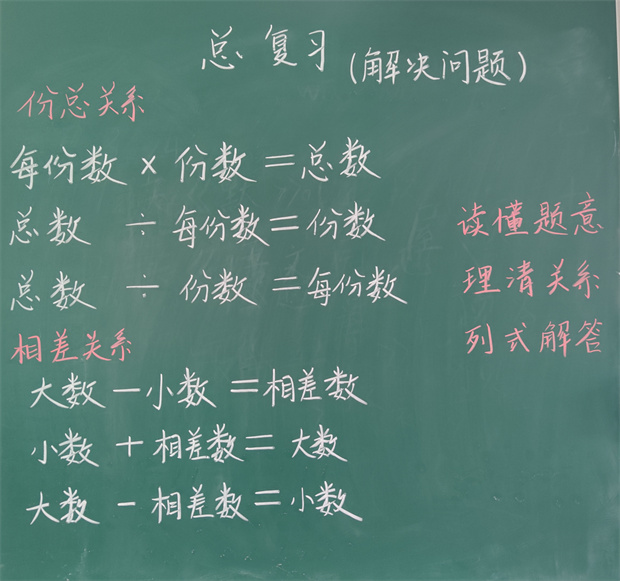 总复习(解决问题)
份总关系
每份数×份数=总数
总数÷每份数=份数
总数÷份数=每份数
相差关系
大数-小数=相差数
小数+相差数=大数
大数-相差数=小数
读懂题意
理清关系
列式解答